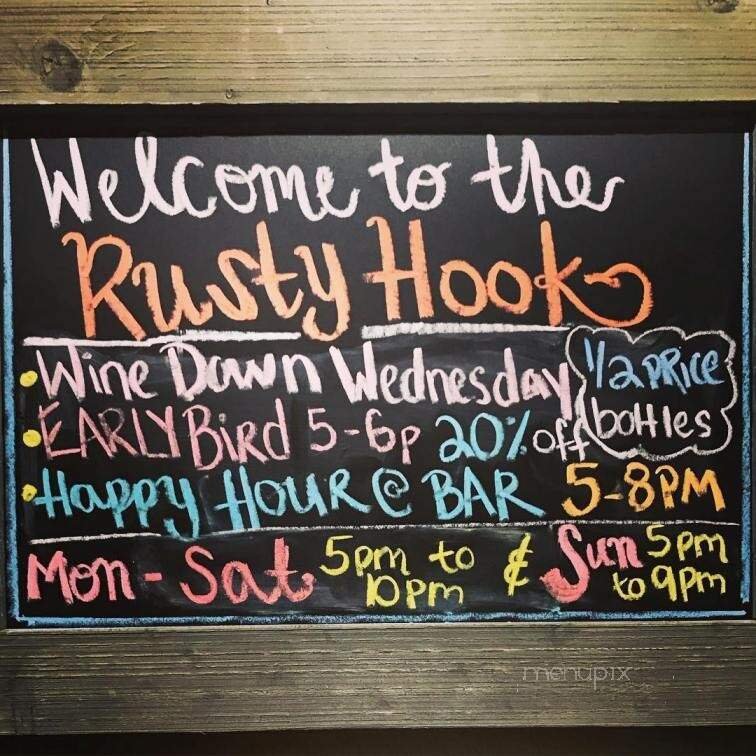 Welcome to the
Rusty Hook
Wine Down Wednesday 1/2 PRICE bottles
EARLY Bird 5-6p 20% off
Happy Hour @ BAR 5-8PM
Mon - Sat 5pm to 10pm & Sun 5pm to 9pm
menupix